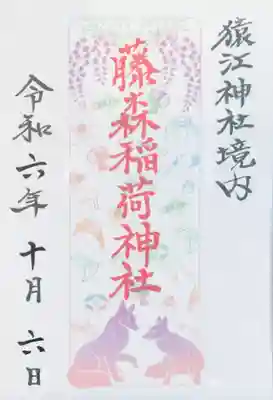 猿江神社境内
藤森稲荷神社
令和六年 十月 六日